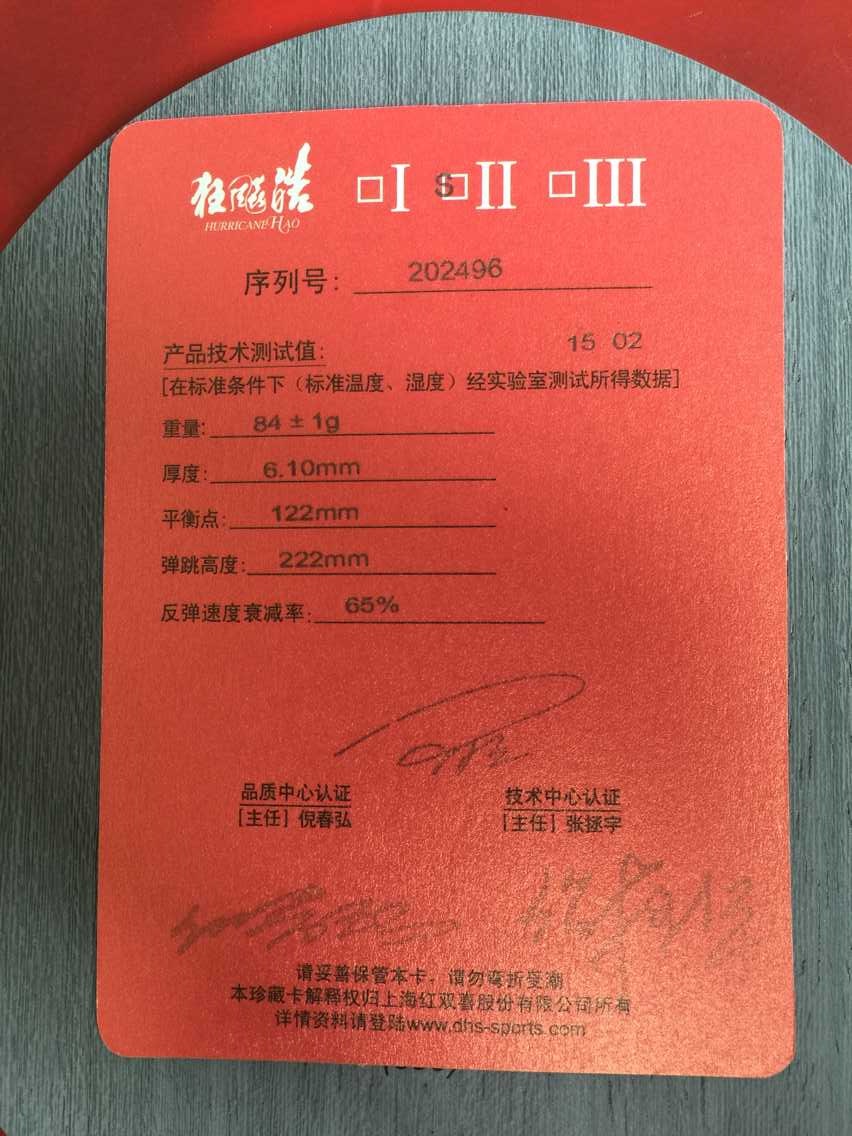 狂飚皓 □I S□II □III
HURRICANE HAO
序列号: 202496
产品技术测试值: 15 02
[在标准条件下（标准温度、湿度）经实验室测试所得数据]
重量: 84 ± 1g
厚度: 6.10mm
平衡点: 122mm
弹跳高度: 222mm
反弹速度衰减率: 65%
品质中心认证 技术中心认证
[主任] 倪春弘 [主任] 张拯宇
请妥善保管本卡，请勿弯折受潮
本珍藏卡解释权归上海红双喜股份有限公司所有
详情资料请登陆www.dhs-sports.com